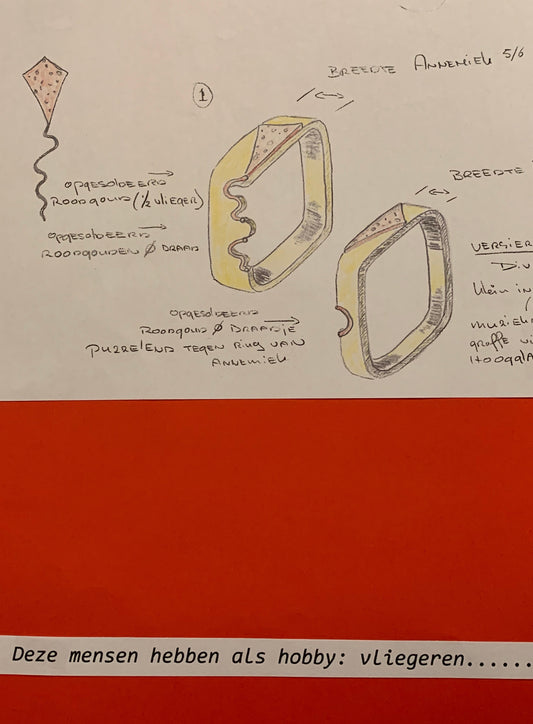 BREEDTE ANNEMIEK 5/6
1
OPGESOLDEERD
ROODGOUD (½ VLIEGER)
OPGESOLDEERD
ROODGOUDEN Ø DRAAD
BREEDTE
VERSIER
DIV
klein in
OPGESOLDEERD
ROODGOUD Ø DRAADJE
PUZZELEND TEGEN RING VAN
ANNEMIEK
muziek
HOOGGLA
Deze mensen hebben als hobby: vliegeren......